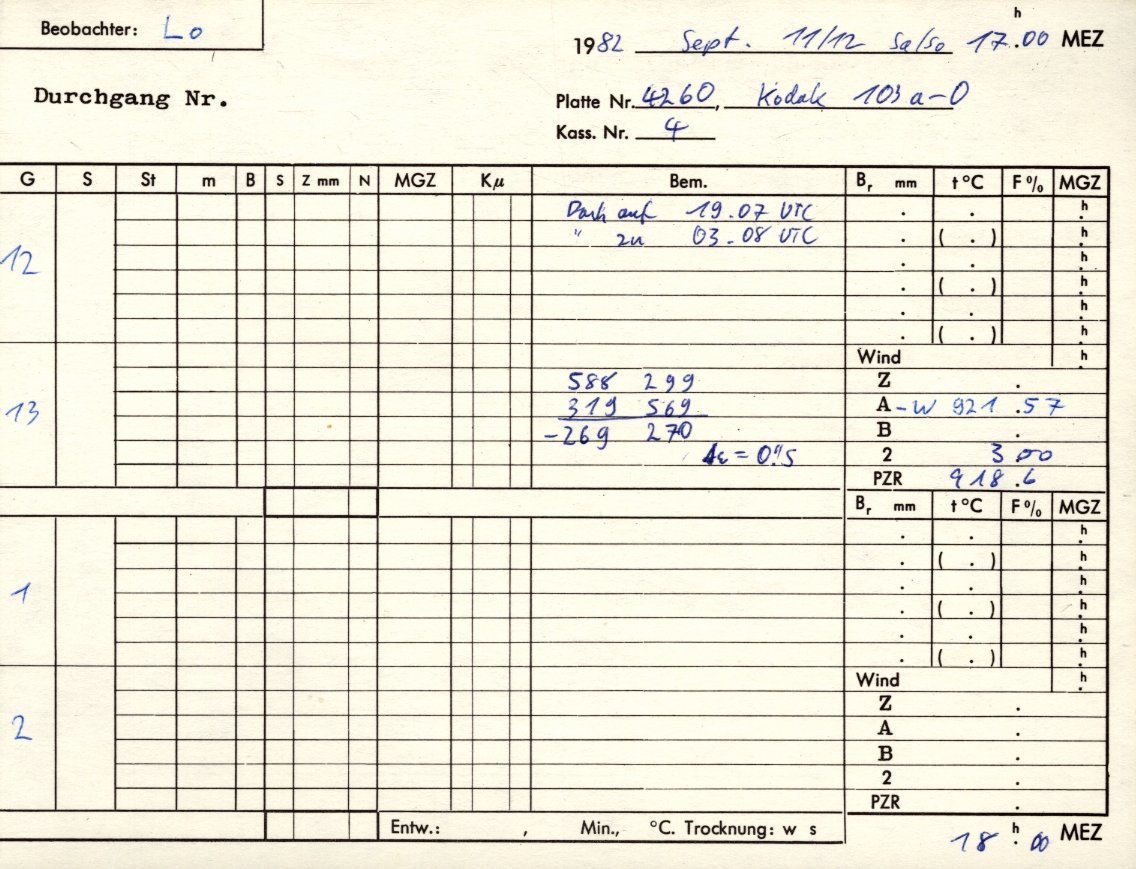 Beobachter: Lo
1982 Sept. 11/12 Sa/So 17 h .00 MEZ
Durchgang Nr.
Platte Nr. 4260, Kodak 103 a-O
Kass. Nr. 4
G S St m B S Z mm N MGZ Kμ Bem. Br mm t °C F % MGZ
Dach auf 19.07 UTC . . h.
" zu 03.08 UTC . ( . ) h.
12 . . h.
. ( . ) h.
. . h.
. ( . ) h.
Wind h.
588 299 Z .
13 319 569 A -W 921 .57
-269 270 B .
Δε = 0."5 2 3 00
PZR 918 .6
Br mm t °C F % MGZ
. . h.
. ( . ) h.
1 . . h.
. ( . ) h.
. . h.
. ( . ) h.
Wind h.
Z .
2 A .
B .
2 .
PZR .
Entw.: , Min., °C. Trocknung: w s
18 h . 00 MEZ